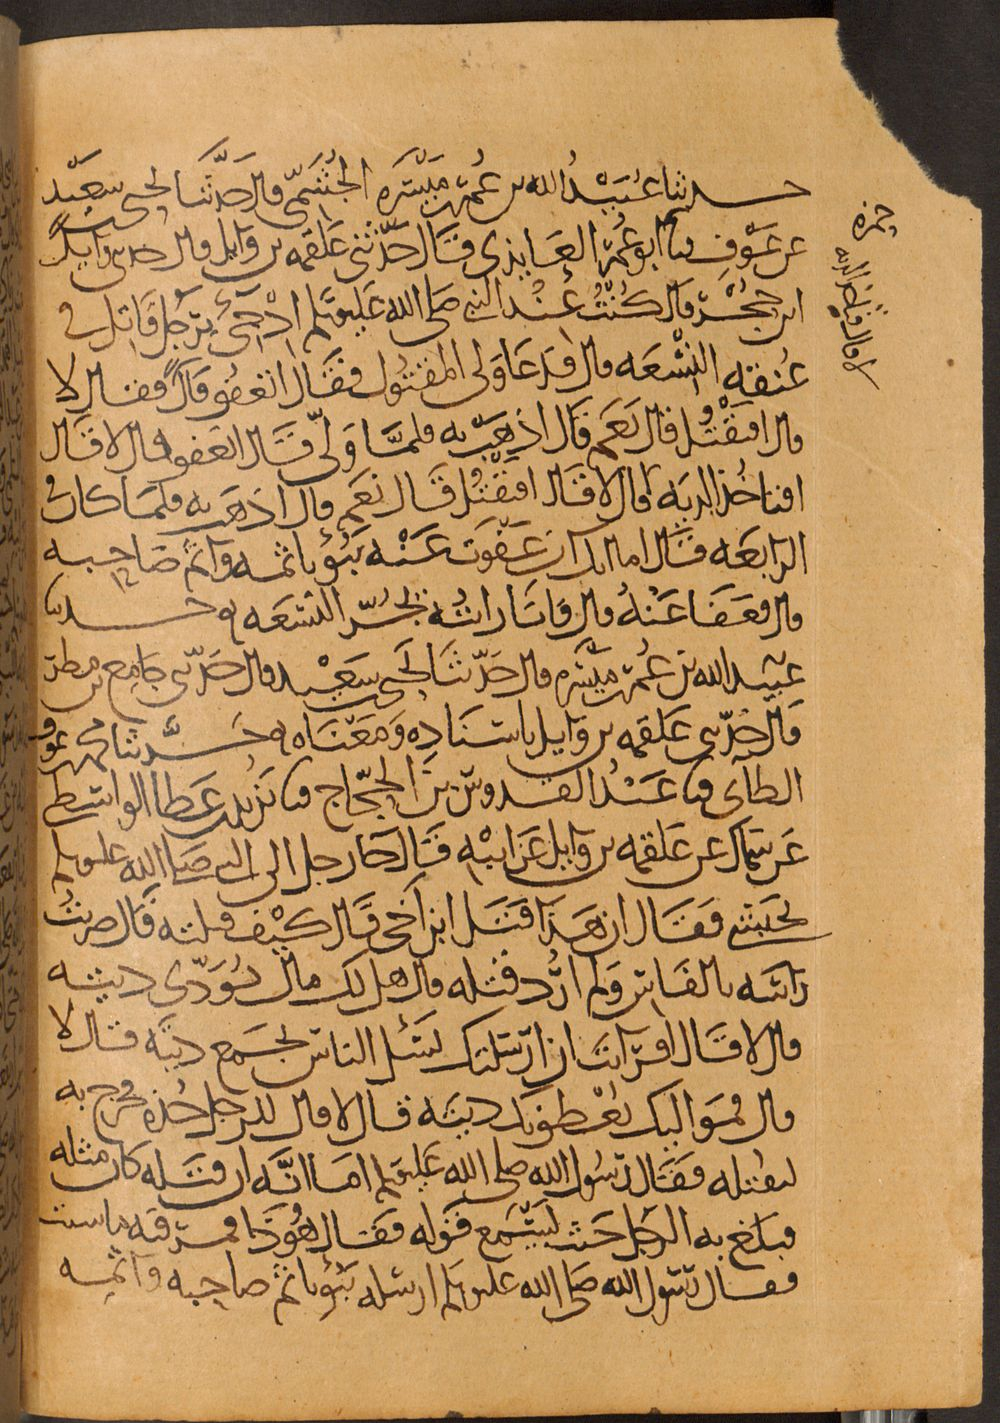 حدثنا عُبَيْدُ الله بن عُمَر بن مَيْسَرَه الجُشَمّي قال حَدَّثَنَا يحيى بن سَعِيْد
عن عَوْفٍ نا ابو عُمَر العَايذي قَال حَدَّثَنِي عَلقمه بن وَايل قال حدثني وَايل
ابن حُجْر قال كُنْتُ عِنْد النبي صَلى الله عَليه وسَلم اِذْ جِيْءَ بِرَجُل قَاتِل في
عُنقه النِسْعَه قال فدَعَا وَلي المَقتُول فقَال اتَعفُو قالَ فقال لا
قال افتَقْتُل قال نَعَم قَال اذهَبْ به فلمَّا وَلّى قَال اتعفو قال لا قَال
افتاخُذ الديَه قال لا قَال افتَقْتُل قَال نعَم قال اذهَب به فلمَا كان في
الرابعَه قَال اما انك ان عَفَوت عَنْه يَبُوْ باثمه وَاثم صَاحِبه
قال فعَفَا عَنْهُ قال فَانَا رَايتُه يَجُرّ النِسْعَه حدثنا
عبَيد الله بن عُمَر بن مَيْسَره قال حَدّثنَا يَحيى بن سَعيْد قال حَدّثني جَامِع بن مطر
قَال حَدّثني عَلقمه بن وَايل باسْنَادِه وَمَعْنَاه حَدَّثنا محمد بن عوف
الطآى نا عَبْدُ القدوس بن الحَجَّاج نا يَزيْد بن عَطَا الواسطي
عَن سماك عن عَلقمه بن وَايل عَن ابيْه قَال جَا رجل الى النبي صَلى الله عليه وسلم
بحَبَشي فقَال ان هَذَا قَتَل ابن أخي قَال كيْف قتلته قَال ضربتُ
رَاسَه بالفَاس وَلم ارُد قَتْله قال هل لك مال تُؤَدّي ديته
قال لا قَال افرَايتَ ان ارْسَلتك تسَل الناس تجمَع ديَته قال لا
قال فمَوَاليك يُعْطونك ديَته قال لا قال للرجل خُذه فخرج به
ليقتله فقَال رَسُول الله صلى الله عَليه وسلم امَا انَّه ان قَتَله كان مثله
فبلَغ به الرَجل حَيث يَسْمع قَوله فقَال هُوَ ذا فمر فيه ما شيت
فقال رَسُول الله صَلى الله عليه وسلم ارسله يَبُوْ باثم صاحِبه وَاثمه